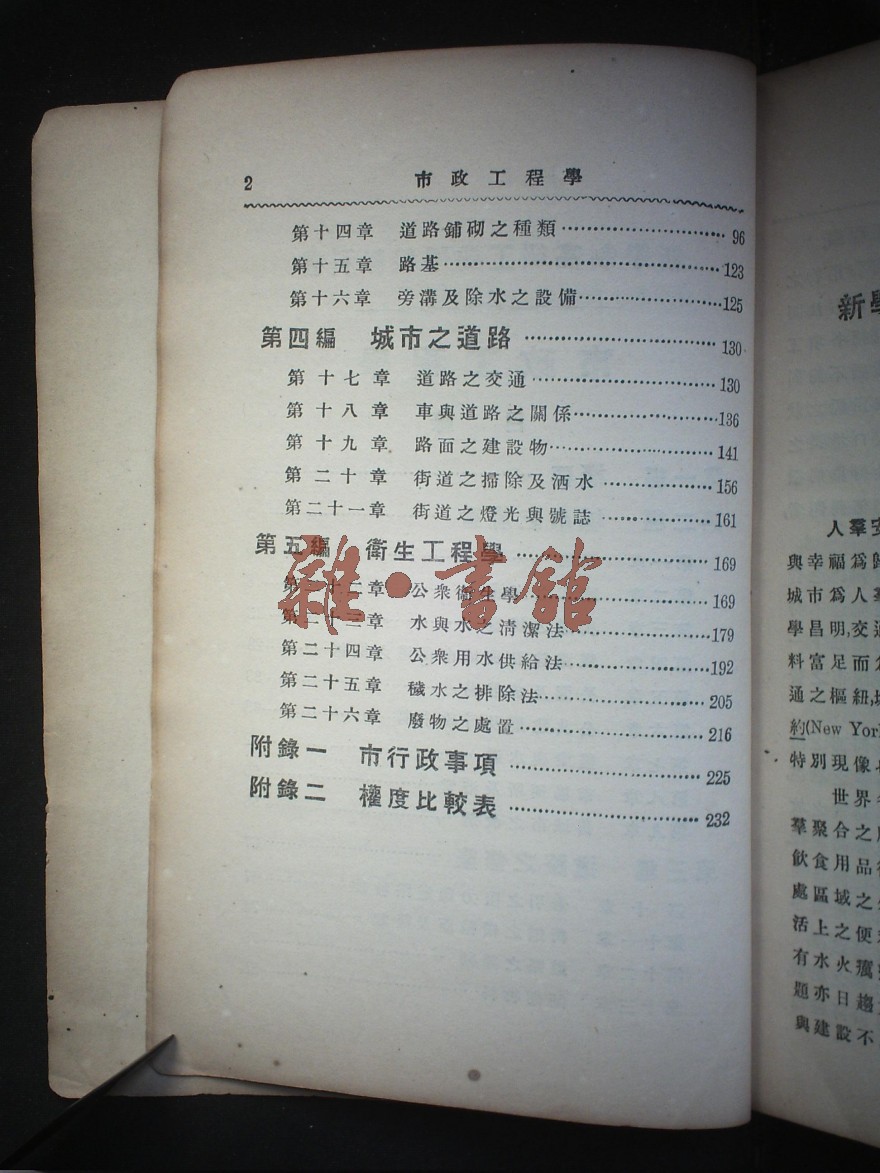 2 市政工程學
第十四章 道路鋪砌之種類 96
第十五章 路基 123
第十六章 旁溝及除水之設備 125
第四編 城市之道路 130
第十七章 道路之交通 130
第十八章 車與道路之關係 136
第十九章 路面之建設物 141
第二十章 街道之掃除及洒水 156
第二十一章 街道之燈光與號誌 161
第五編 衛生工程學 169
第二十二章 公衆衛生學 169
第二十三章 水與水之清潔法 179
第二十四章 公衆用水供給法 192
第二十五章 穢水之排除法 205
第二十六章 廢物之處置 216
附錄一 市行政事項 225
附錄二 權度比較表 232
雜·書館
新
人羣安
與幸福爲歸
城市爲人羣
學昌明,交通
料富足而
通之樞紐,
約(New Yor
特別現像
世界
羣聚合之
飲食用品
處區域之
活上之便
有水火
題亦日趨
與建設不